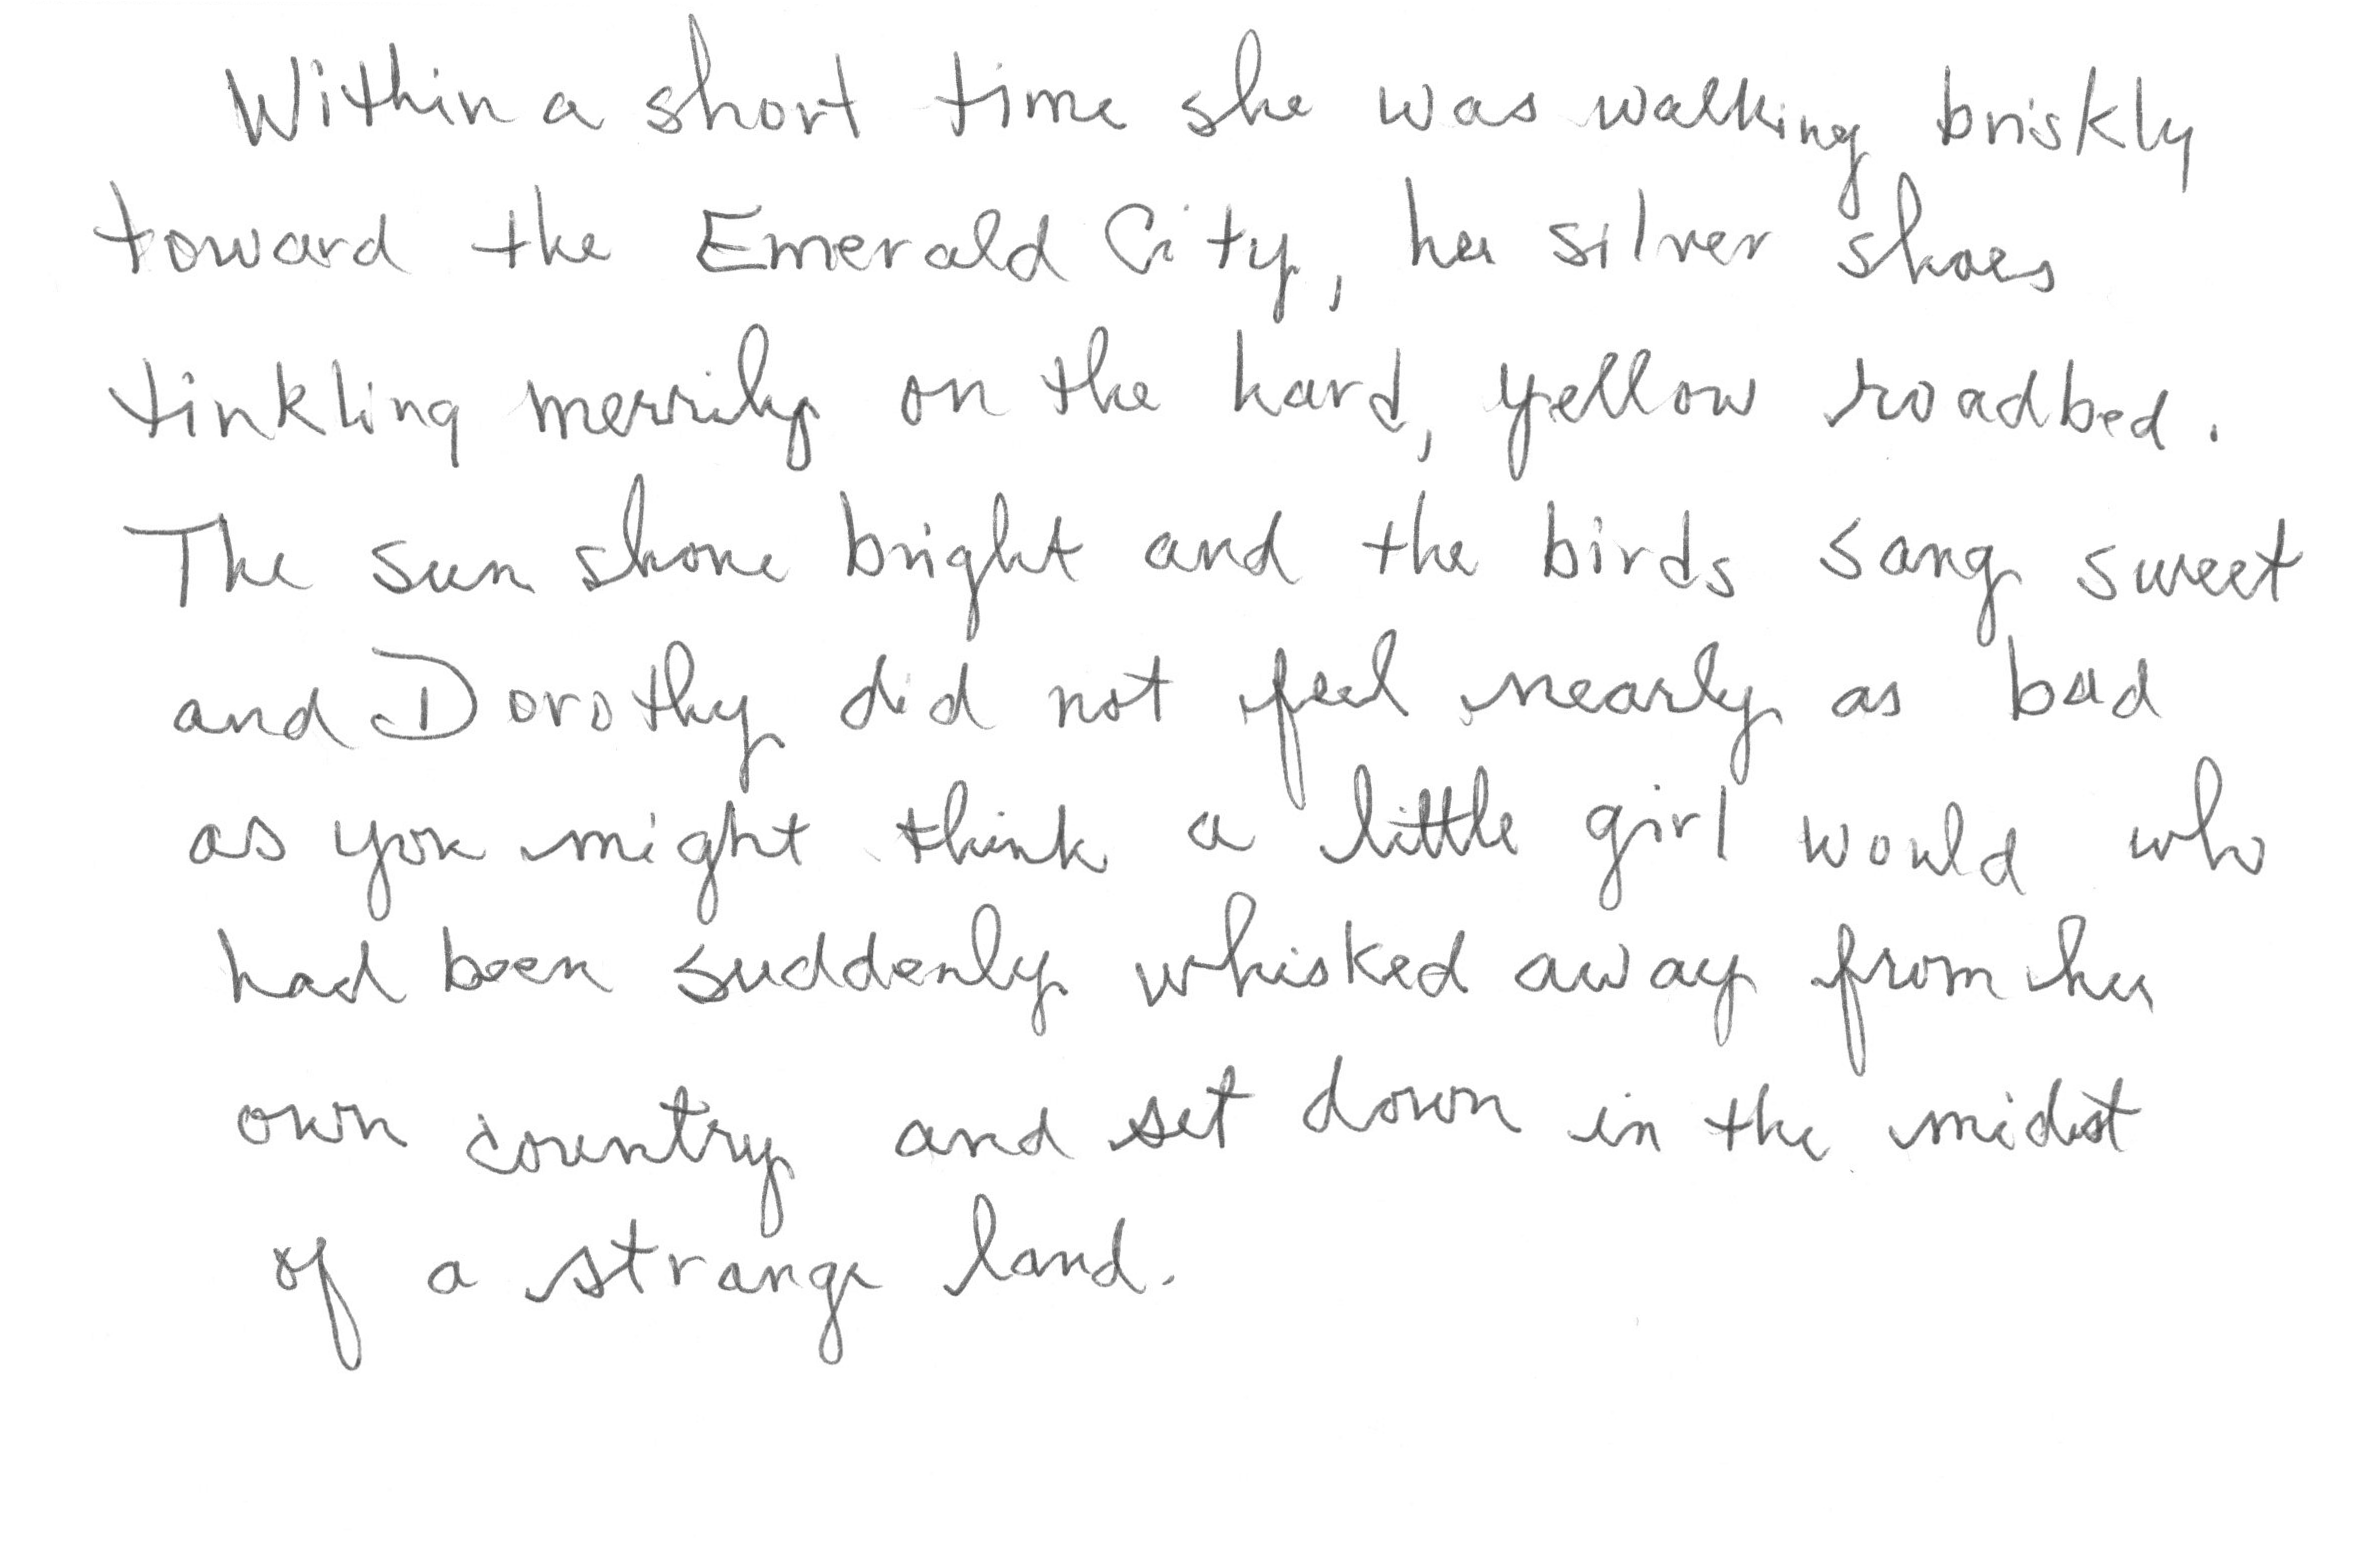 Within a short time she was walking briskly
toward the Emerald City, her silver shoes
tinkling merrily on the hard, yellow roadbed.
The sun shone bright and the birds sang sweet
and Dorothy did not feel nearly as bad
as you might think a little girl would who
had been suddenly whisked away from her
own country and set down in the midst
of a strange land.